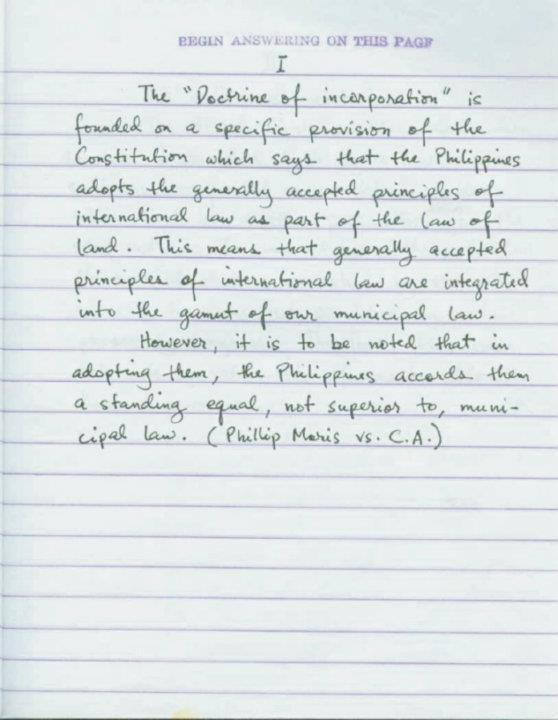 BEGIN ANSWERING ON THIS PAGE
I
The "Doctrine of incorporation" is
founded on a specific provision of the
Constitution which says that the Philippines
adopts the generally accepted principles of
international law as part of the law of
land. This means that generally accepted
principles of international law are integrated
into the gamut of our municipal law.
However, it is to be noted that in
adopting them, the Philippines accords them
a standing equal, not superior to, muni-
cipal law. (Phillip Moris vs. C.A.)